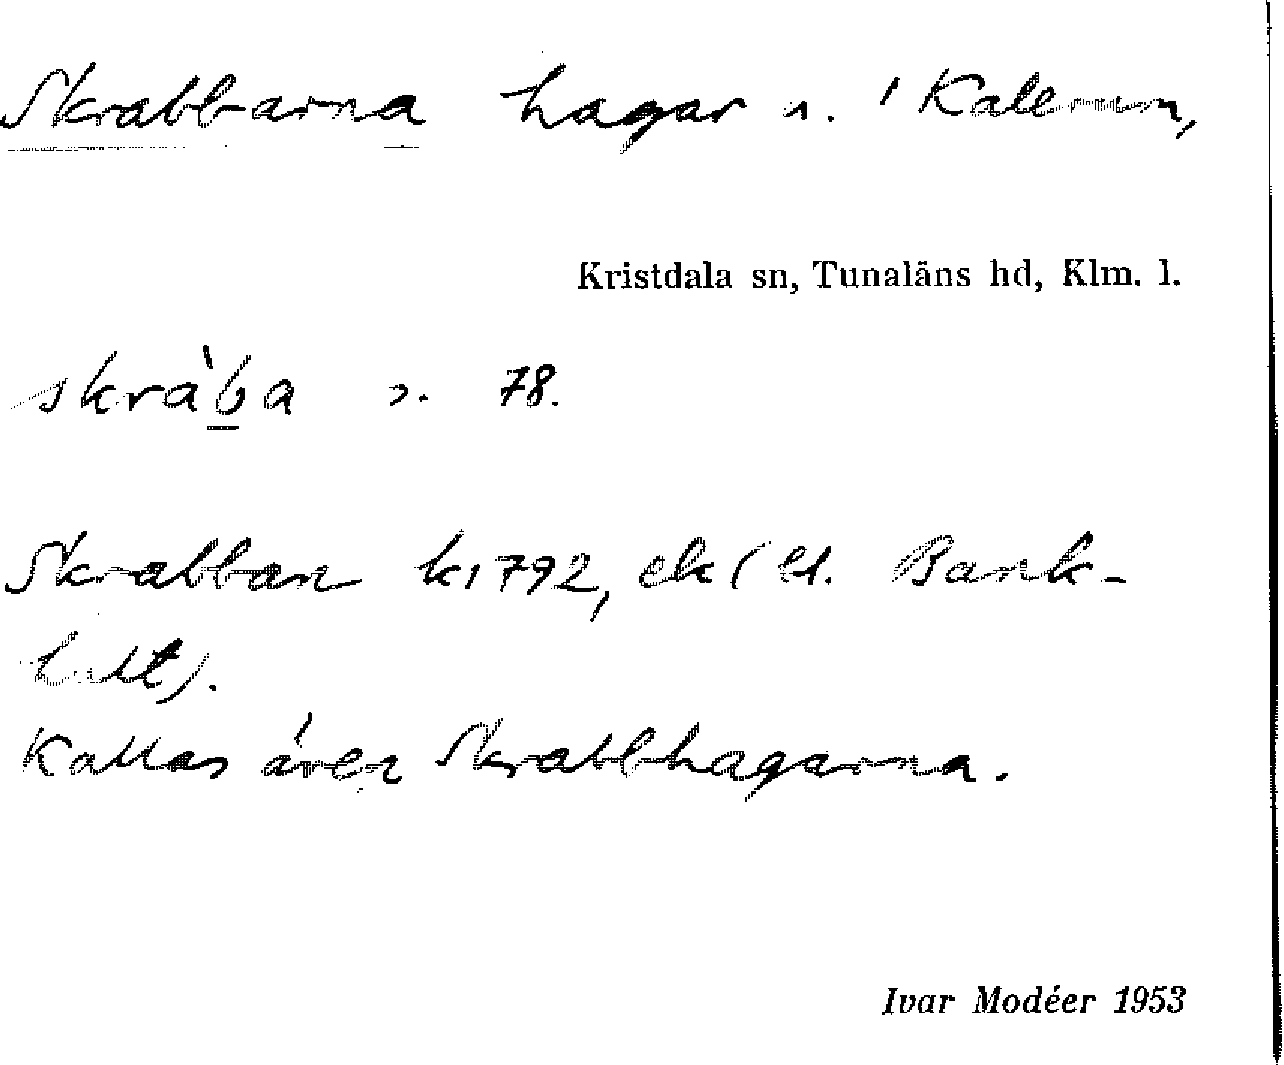 Skrabbarna hagar n. i Kalerum,
Kristdala sn, Tunaläns hd, Klm. l.
skràba s. 78.
Skrabban k1792, ek (el. Bank-
hult).
Kallas även Skrabbhagarna.
Ivar Modéer 1953